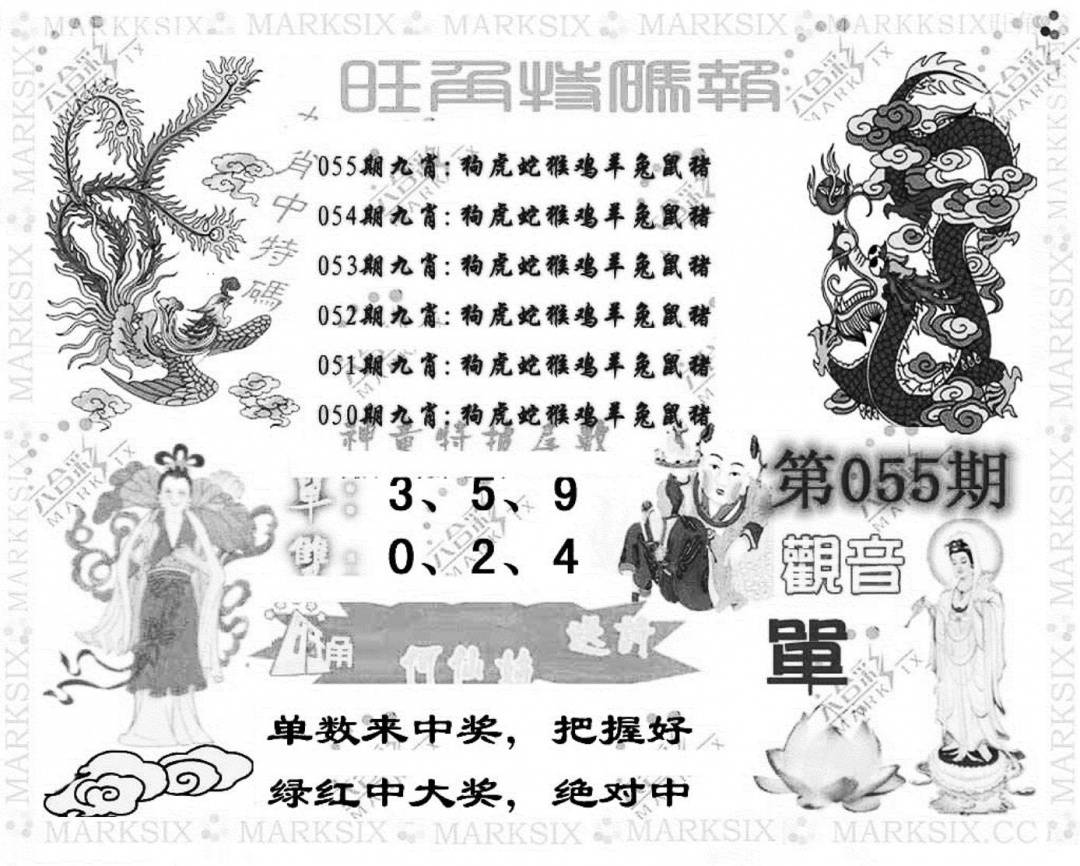 MARKKSIX MARKSIX MARKSIX MARKSIX MARKKSIX
旺角特碼報
肖中特碼
055期九肖:狗虎蛇猴鸡羊兔鼠猪
054期九肖:狗虎蛇猴鸡羊兔鼠猪
053期九肖:狗虎蛇猴鸡羊兔鼠猪
052期九肖:狗虎蛇猴鸡羊兔鼠猪
051期九肖:狗虎蛇猴鸡羊兔鼠猪
050期九肖:狗虎蛇猴鸡羊兔鼠猪
第055期
單: 3、5、9
雙: 0、2、4
觀音
單
何仙姑
单数来中奖，把握好
绿红中大奖，绝对中
MARKSIX MARKSIX MARKSIX MARKSIX MARKSIX.CC